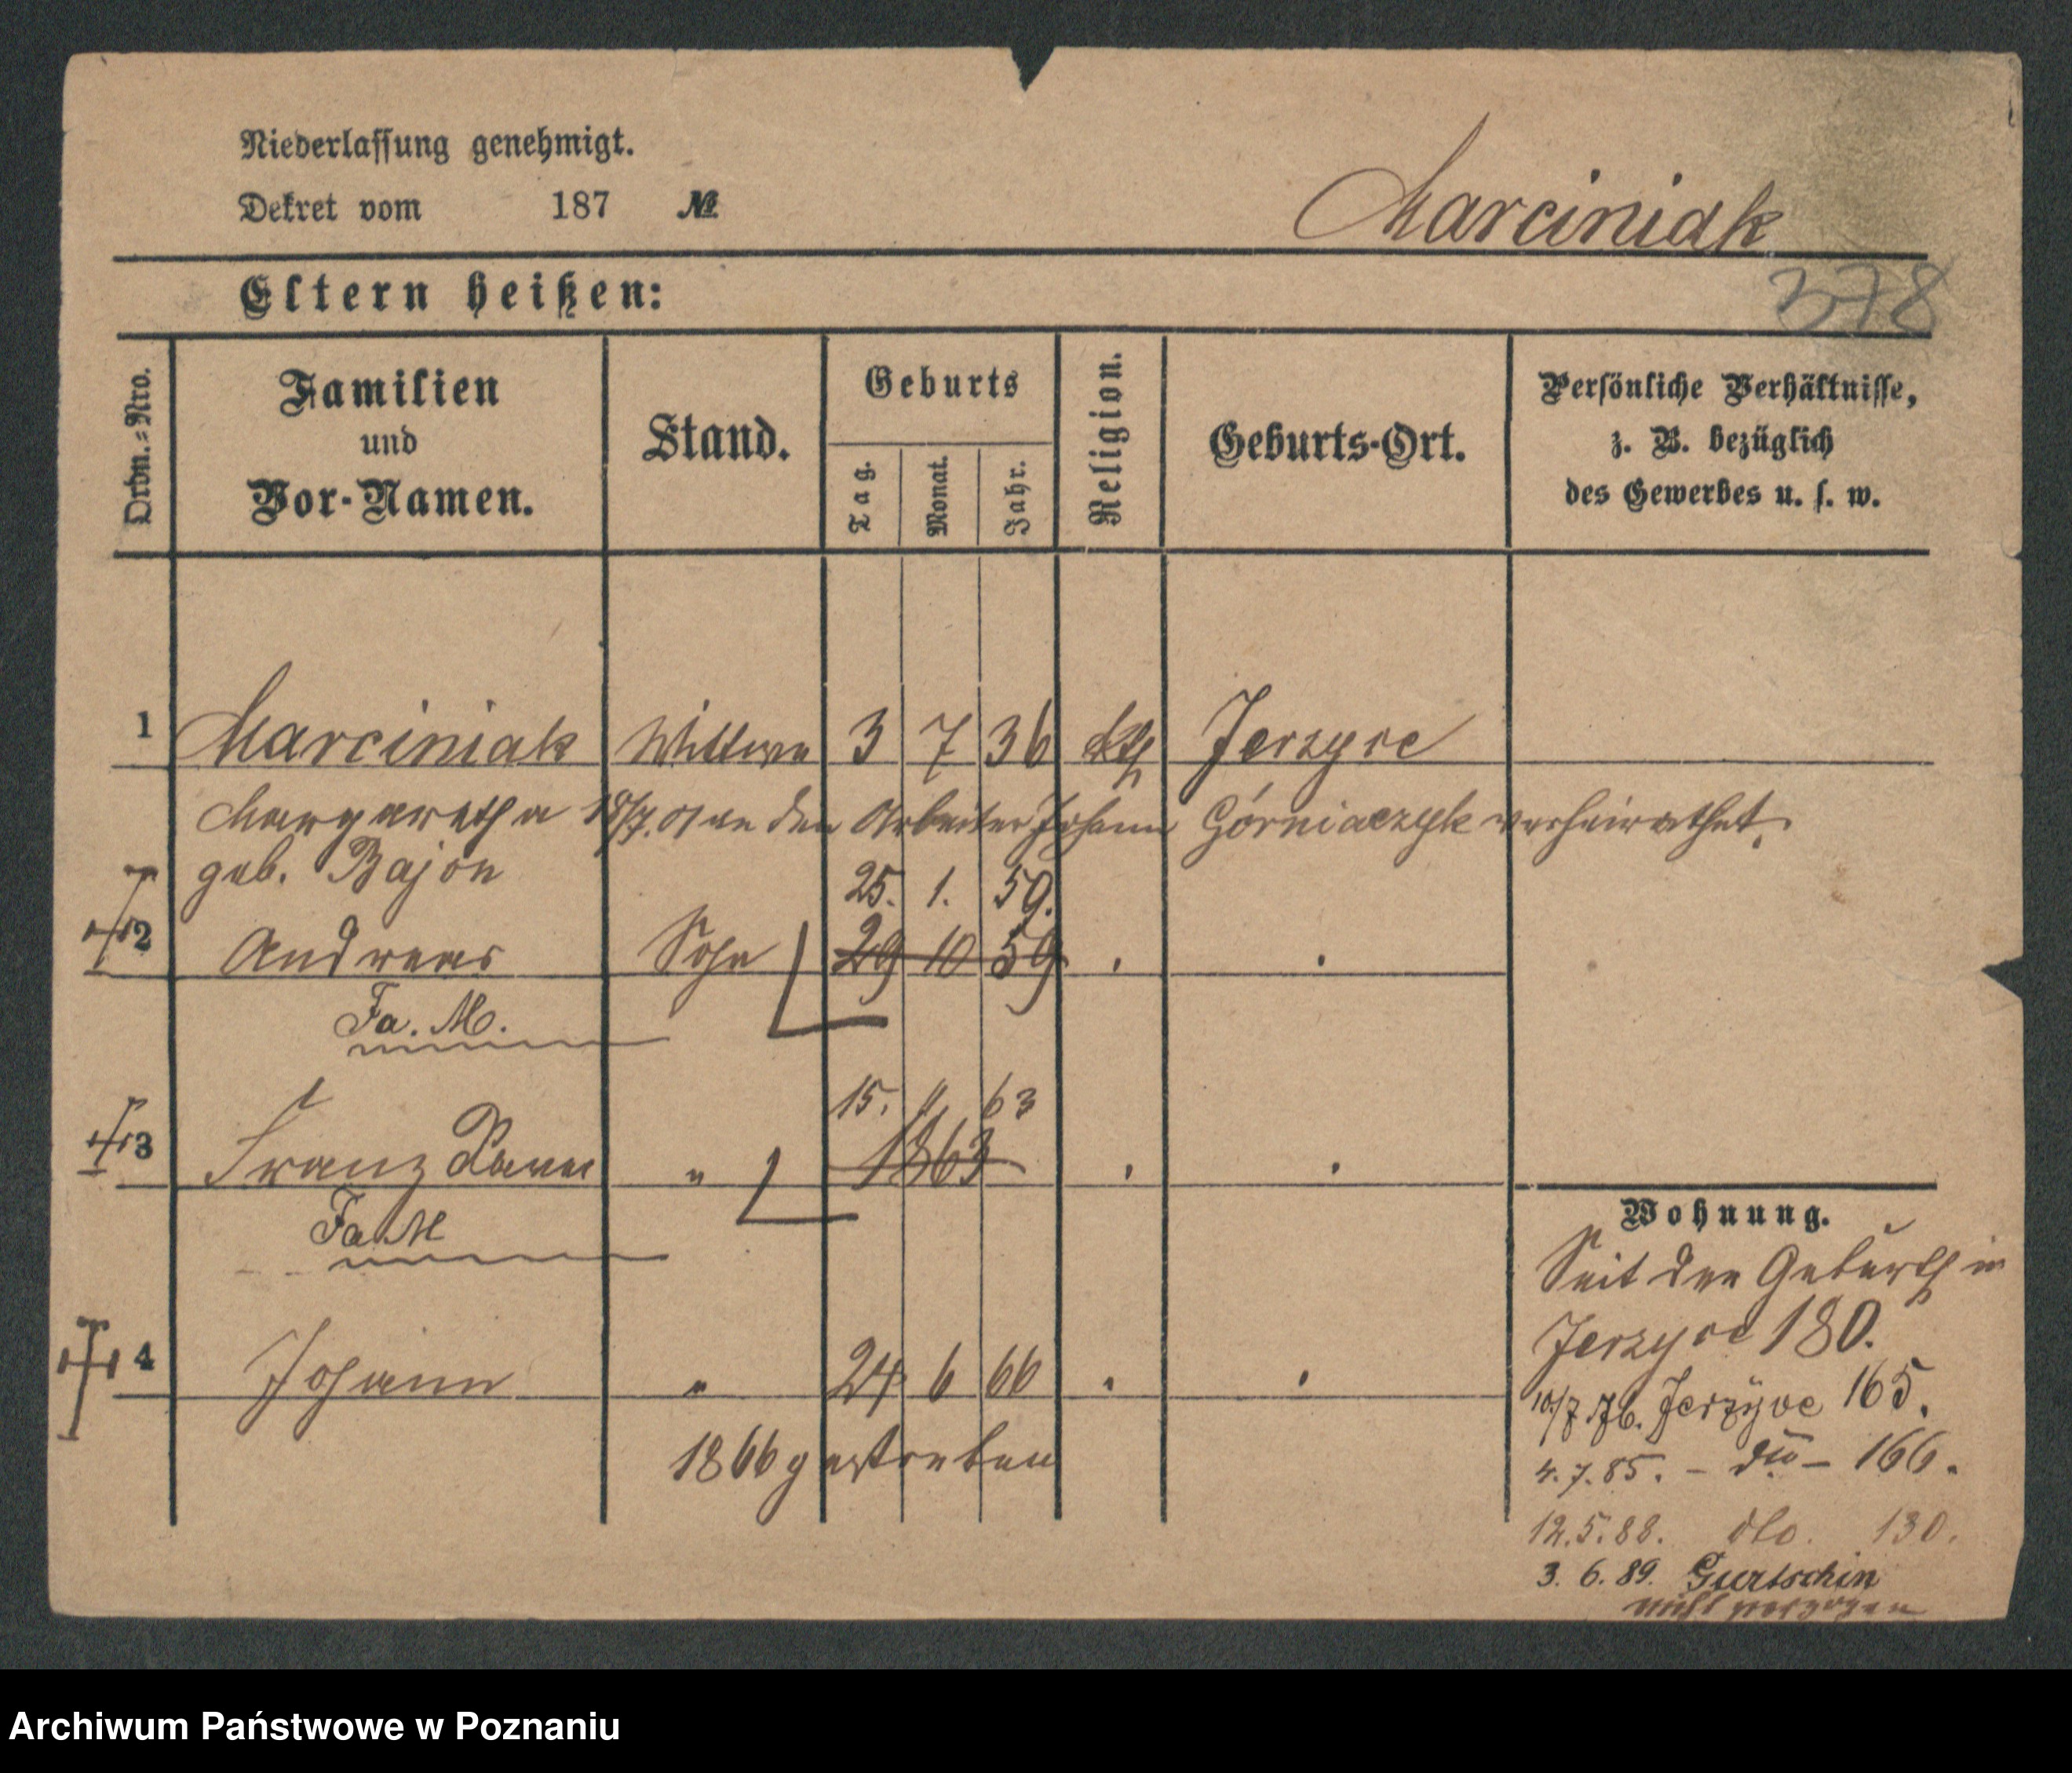 Niederlassung genehmigt.
Dekret vom 187 №
Marciniak
378
Eltern heißen:
Ordn.=Nro.
Familien
und
Vor-Namen.
Stand.
Geburts
Tag.
Monat.
Jahr.
Religion.
Geburts-Ort.
Persönliche Verhältnisse,
z. B. bezüglich
des Gewerbes u. s. w.
1 Marciniak Wittwe 3 7 36 kth Jerzyce
Margaretha 18/7. 01 an den Arbeiter Johann Górniaczyk verheirathet.
geb. Bajon
25. 1. 59.
2 Andreas Sohn 29 10 59
Fa. M.
15. 11 63
3 Franz " 1863
Fa. M
4 Johann " 24 6 66
1866 gestorben
Wohnung.
Seit der Geburth in
Jerzyce 180.
10/7 76. Jerzyce 165.
4. 7. 85. - do - 166.
12. 5. 88. dto. 130.
3. 6. 89. Gurtschin
nicht verzogen
Archiwum Państwowe w Poznaniu